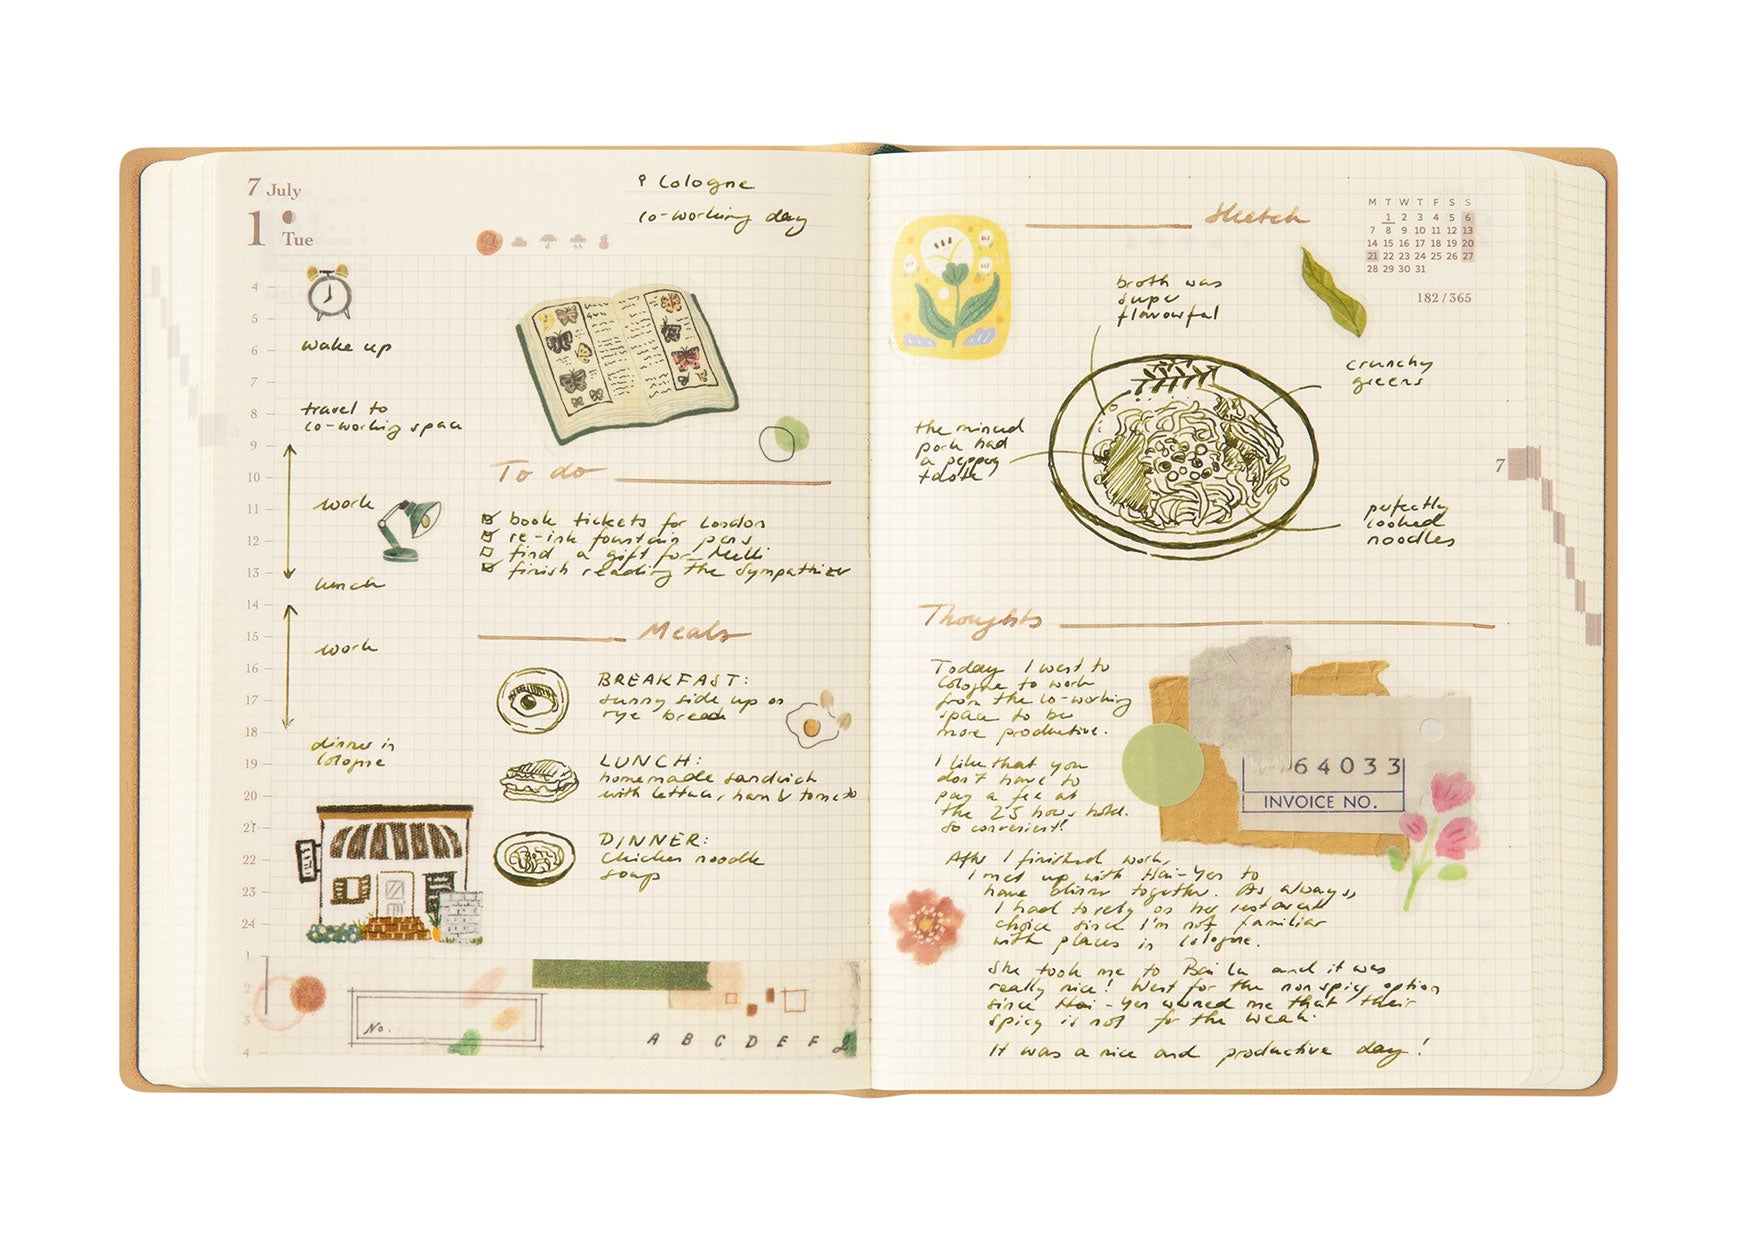 7 July
1 Tue
Cologne
co-working day
4
5
6
7
8
9
10
11
12
13
14
15
16
17
18
19
20
21
22
23
24
1
2
3
4
wake up
travel to
co-working space
work
lunch
work
dinner in
Cologne
To do
book tickets for London
re-ink fountain pens
find a gift for Melli
finish reading the Sympathizer
Meals
BREAKFAST:
sunny side up on
rye bread
LUNCH:
homemade sandwich
with lettuce, ham & tomato
DINNER:
chicken noodle
soup
No.
A B C D E F
Sketch
M T W T F S S
1 2 3 4 5 6
7 8 9 10 11 12 13
14 15 16 17 18 19 20
21 22 23 24 25 26 27
28 29 30 31
182/365
7
broth was
super
flavourful
crunchy
greens
the minced
pork had
a peppery
taste
perfectly
cooked
noodles
Thoughts
Today I went to
Cologne to work
from the co-working
space to be
more productive.
I like that you
don't have to
pay a fee at
the 25 hours hotel.
So convenient!
64033
INVOICE NO.
After I finished work,
I met up with Hai-Yen to
have dinner together. As always,
I had to rely on her restaurant
choice since I'm not familiar
with places in Cologne.
She took me to Bai Lu and it was
really nice! Went for the non spicy option
since Hai-Yen warned me that their
spicy is not for the weak.
It was a nice and productive day!